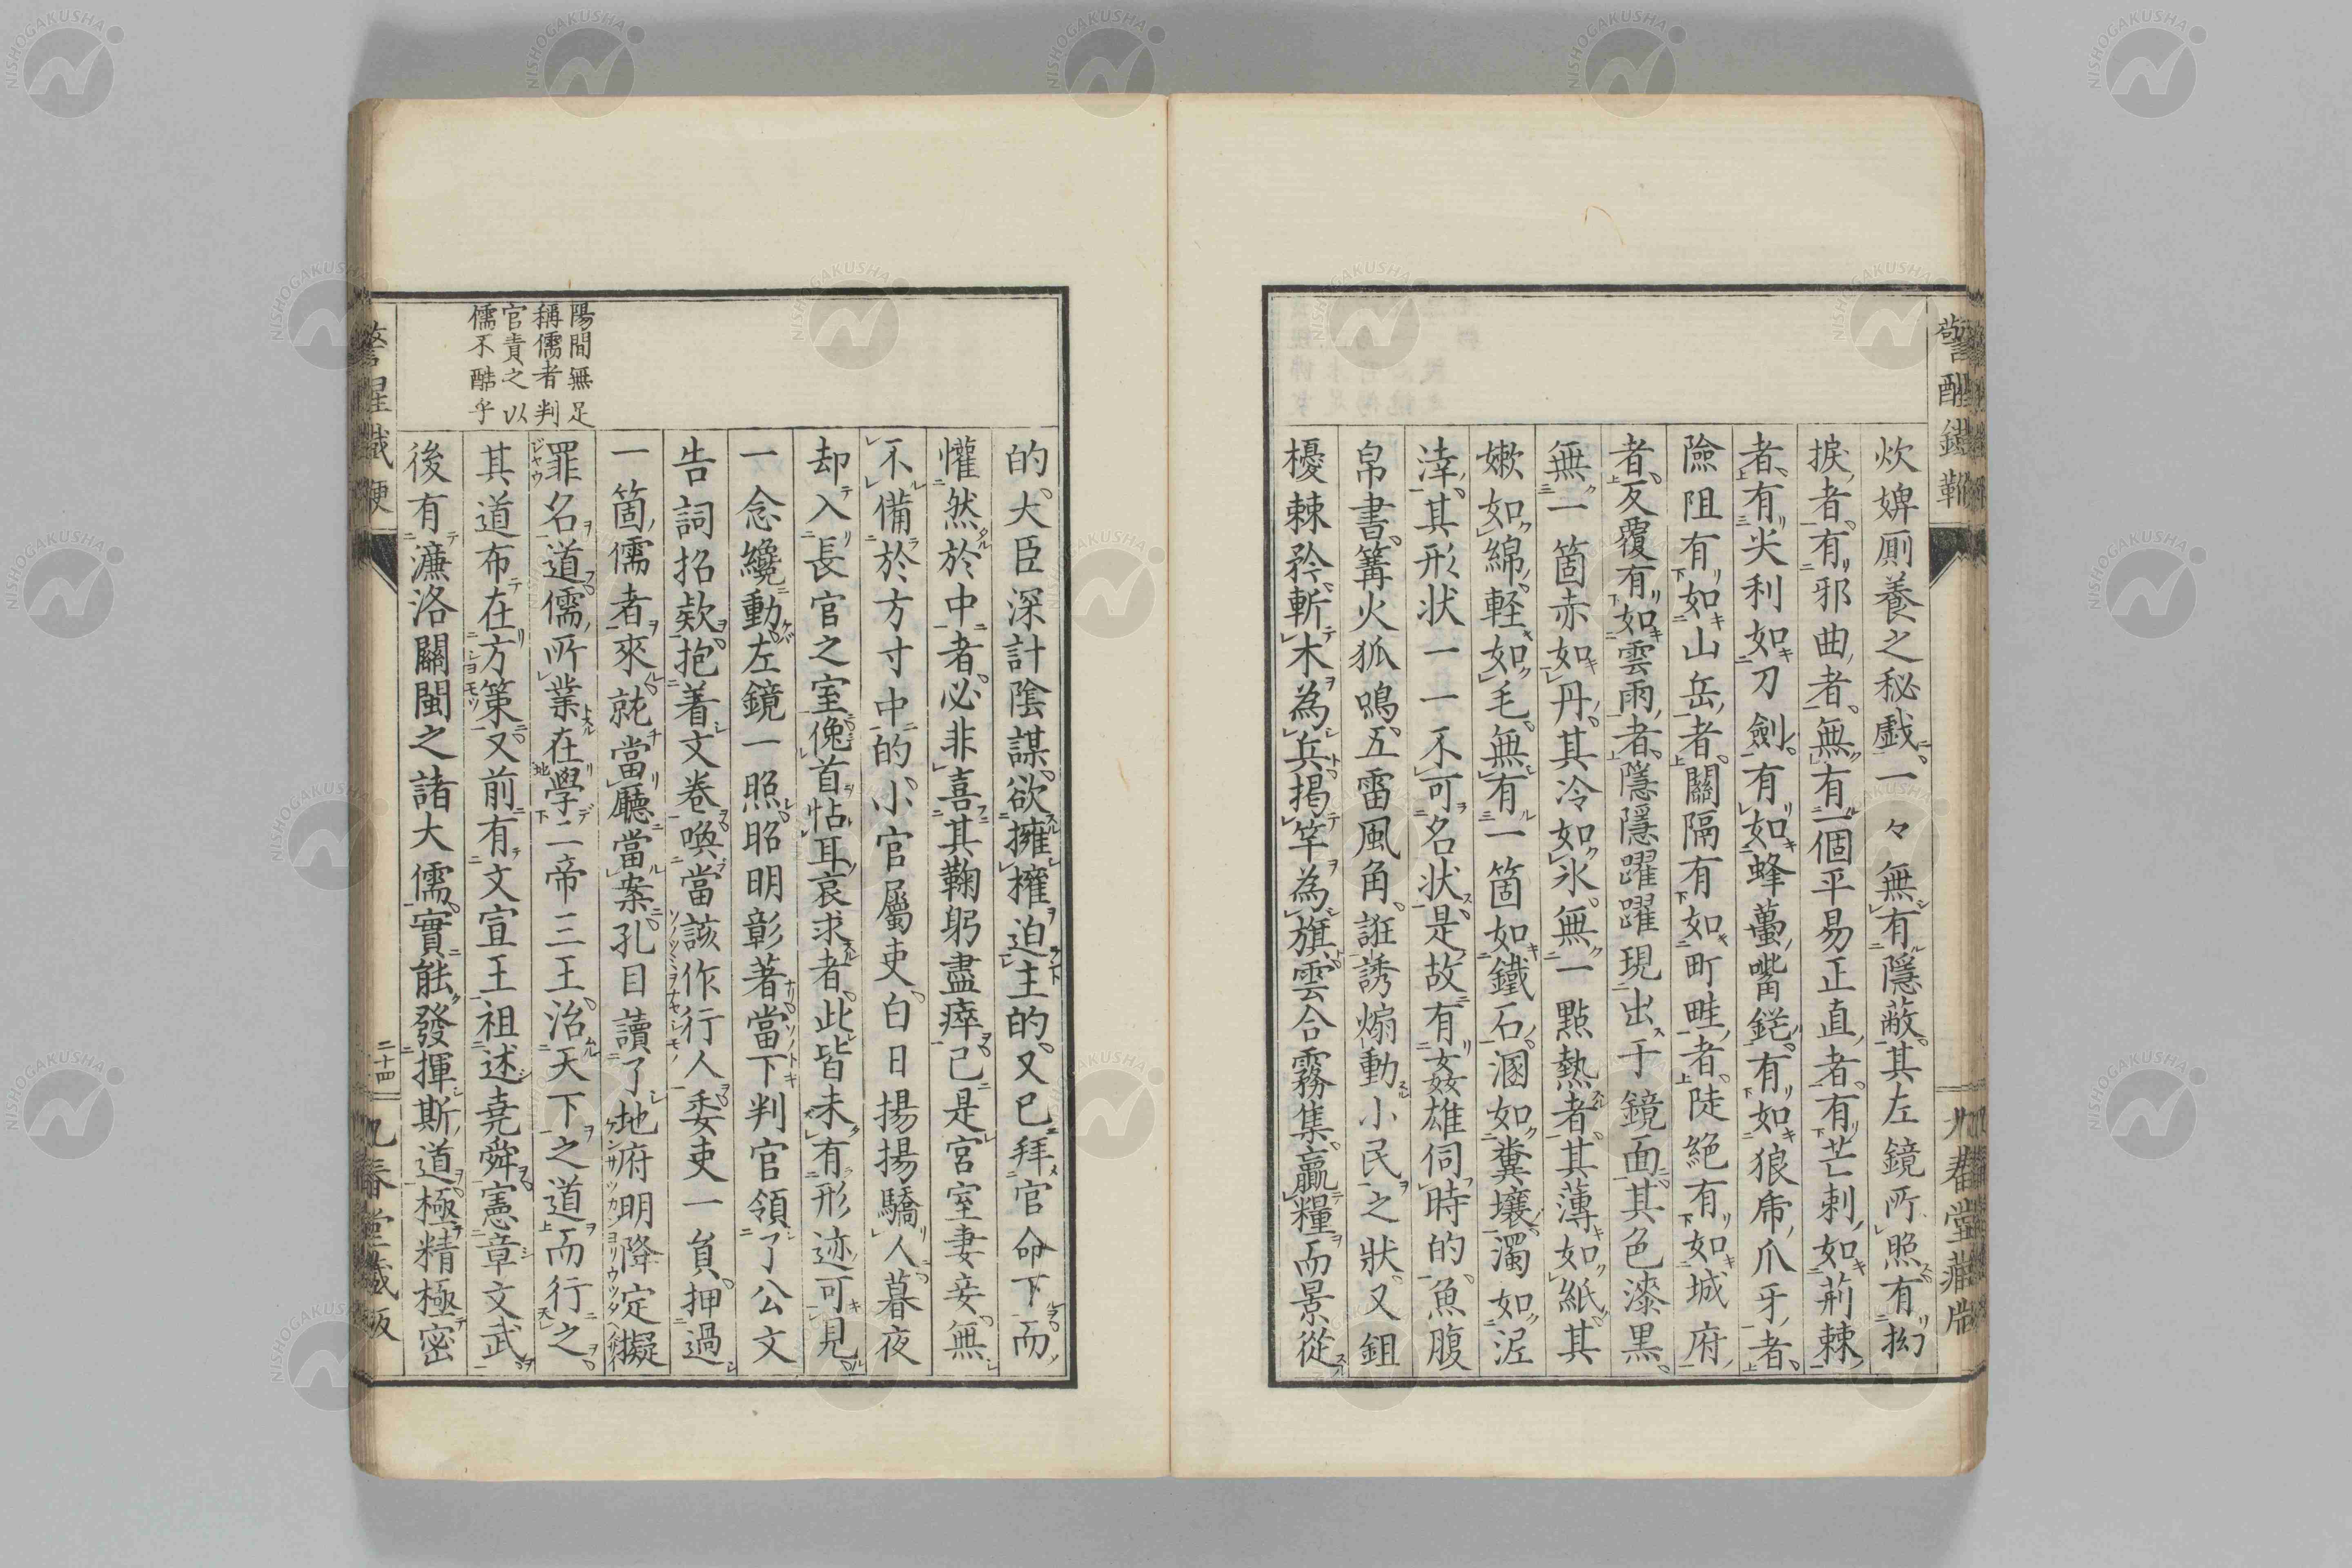 炊婢厠養之秘戯一々無有隱蔽其左鏡所照有拗
捩者有邪曲者無有一個平易正直者有芒刺如荊棘
者有尖利如刀劍有如蜂蠆嘴鋩有如狼虎爪牙者
險阻有如山岳者關隔有如町畦者陡絶有如城府
者反覆有如雲雨者隱隱躍躍現出于鏡面其色漆黒
無一箇赤如丹其冷如氷無一點熱者其薄如紙其
嫰如綿輕如毛無有一箇如鐵石溷如糞壤濁如泥
滓其形状一一不可名状是故有姦雄伺時的魚腹
帛書篝火狐鳴五雷風角誑誘煽動小民之狀又鉏
櫌棘矜斬木為兵掲竿為旗雲合霧集贏糧而景從
的大臣深計陰謀欲擁權迫主的又已拜官命下而
懽然於中者必非喜其鞠躬盡瘁已是宮室妻妾無
不備於方寸中的小官屬吏白日揚揚驕人暮夜
却入長官之室俛首帖耳哀求者此皆未有形迹可見
一念纔動左鏡一照昭明彰著當下判官領了公文
告詞招欵抱着文卷喚當該作行人委吏一員押過
一箇儒者來就當廳當案孔目讀了地府明降定擬
罪名道儒所業在學二帝三王治天下之道而行之
其道布在方策又前有文宣王祖述堯舜憲章文武
後有濂洛關閩之諸大儒實能發揮斯道極精極密
陽間無足
稱儒者判
官責之以
儒不酷乎
警醒鐵鞭
二十四
九春堂藏版
NISHOGAKUSHA